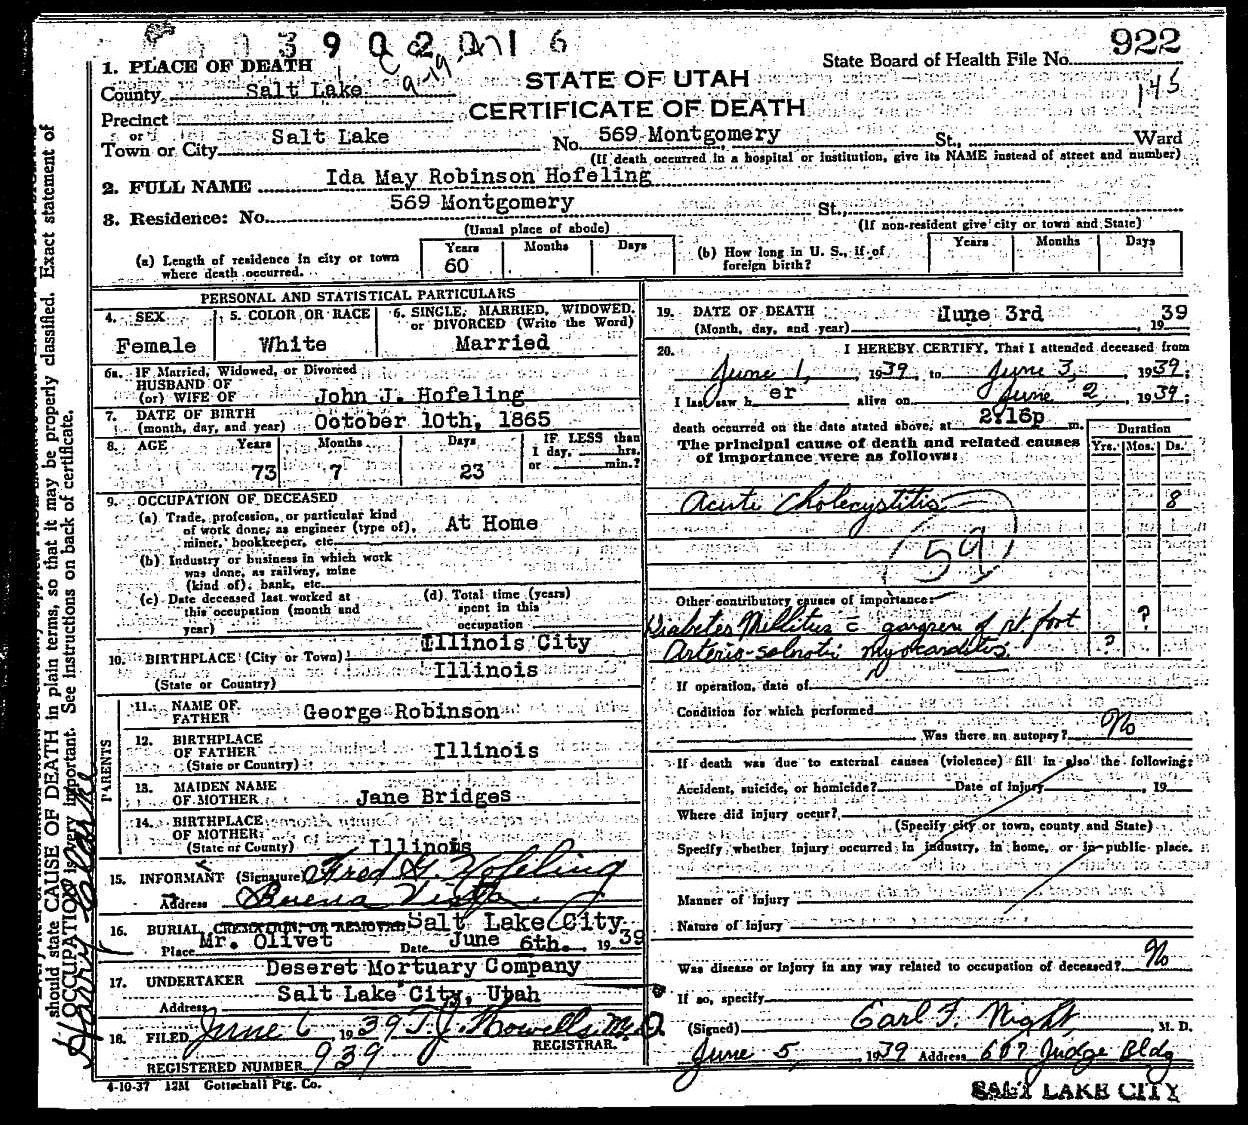 3902016
922
State Board of Health File No.
145
STATE OF UTAH
CERTIFICATE OF DEATH
1. PLACE OF DEATH
County Salt Lake
9-19
Precinct
or
Town or City Salt Lake No. 569 Montgomery St., Ward
(If death occurred in a hospital or institution, give its NAME instead of street and number)
2. FULL NAME Ida May Robinson Hofeling
3. Residence: No. 569 Montgomery St.,
(Usual place of abode) (If non-resident give city or town and State)
(a) Length of residence in city or town where death occurred. Years 60 Months Days
(b) How long in U. S., if of foreign birth? Years Months Days
PERSONAL AND STATISTICAL PARTICULARS
4. SEX Female
5. COLOR OR RACE White
6. SINGLE, MARRIED, WIDOWED, or DIVORCED (Write the Word) Married
6a. IF Married, Widowed, or Divorced
HUSBAND OF
(or) WIFE OF John J. Hofeling
7. DATE OF BIRTH
(month, day, and year) October 10th, 1865
8. AGE Years 73 Months 7 Days 23 IF LESS than 1 day, hrs. or min.?
9. OCCUPATION OF DECEASED
(a) Trade, profession, or particular kind
of work done; as engineer (type of),
miner, bookkeeper, etc. At Home
(b) Industry or business in which work
was done, as railway, mine
(kind of), bank, etc.
(c) Date deceased last worked at
this occupation (month and
year)
(d) Total time (years)
spent in this
occupation
10. BIRTHPLACE (City or Town) Illinois City
(State or Country) Illinois
PARENTS
11. NAME OF FATHER George Robinson
12. BIRTHPLACE OF FATHER (State or Country) Illinois
13. MAIDEN NAME OF MOTHER Jane Bridges
14. BIRTHPLACE OF MOTHER (State or County) Illinois
15. INFORMANT (Signature) Fred G. Hofeling
Address Buena Vista
16. BURIAL, CREMATION, OR REMOVAL Salt Lake City
Place Mr. Olivet Date June 6th. 1939
17. UNDERTAKER Deseret Mortuary Company
Address Salt Lake City, Utah
18. FILED June 6 1939 T. J. Howells M.D.
REGISTRAR.
REGISTERED NUMBER 939
4-10-37 12M Gottschall Ptg. Co.
19. DATE OF DEATH
(Month, day, and year) June 3rd, 1939
20. I HEREBY CERTIFY, That I attended deceased from
June 1, 1939, to June 3, 1939;
I last saw her alive on June 2, 1939;
death occurred on the date stated above, at 2:16p m.
The principal cause of death and related causes
of importance were as follows:
Duration
Yrs. Mos. Ds.
Acute Cholecystitis 8
(59)
Other contributory causes of importance:
Diabetes Mellitus c gangren of rt foot ?
Arterio-sclerotic myocarditis ?
If operation, date of
Condition for which performed
Was there an autopsy? No
If death was due to external causes (violence) fill in also the following:
Accident, suicide, or homicide? Date of injury , 19
Where did injury occur?
(Specify city or town, county and State)
Specify whether injury occurred in industry, in home, or in public place.
Manner of injury
Nature of injury
Was disease or injury in any way related to occupation of deceased? No
If so, specify
(Signed) Earl F. Wight, M. D.
June 5, 1939 Address 607 Judge Bldg
SALT LAKE CITY
should state CAUSE OF DEATH in plain terms, so that it may be properly classified. Exact statement of
OCCUPATION is very important. See instructions on back of certificate.